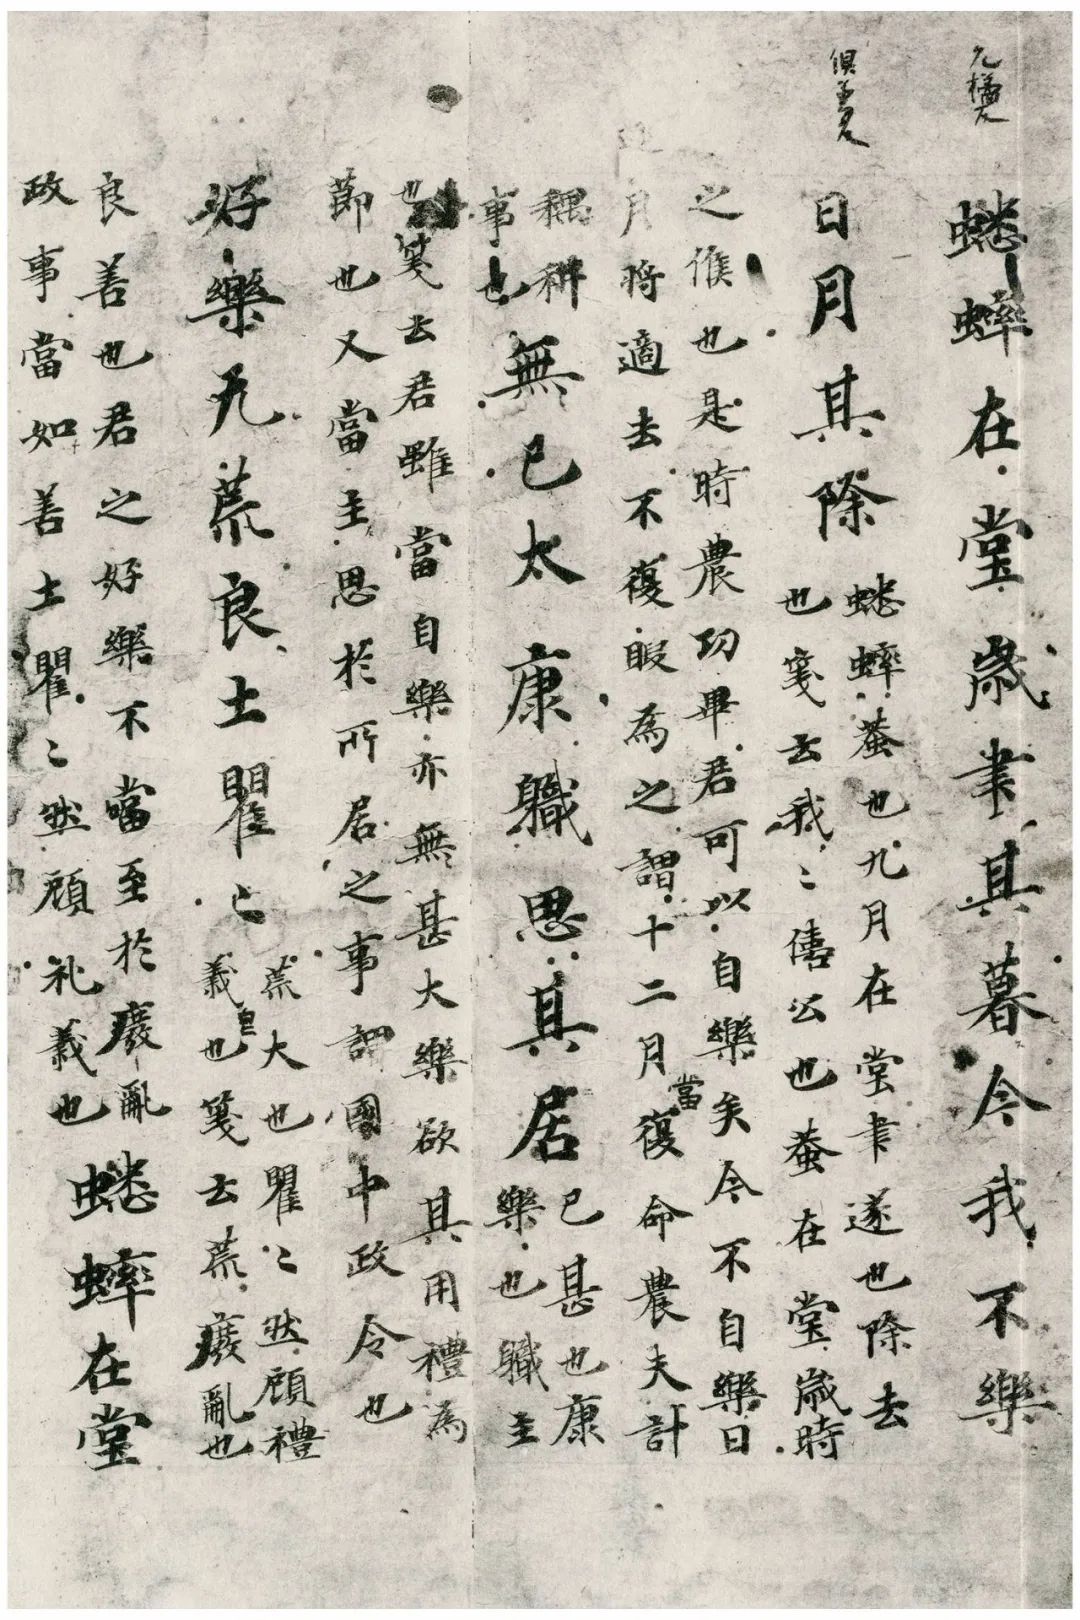 蟋蟀在堂歲聿其暮今我不樂
日月其除
蟋蟀蛬也九月在堂聿遂也除去
也箋云我〻僖公也蛬在堂歲時
之候也是時農功畢君可以自樂矣今不自樂日
月將適去不復暇為之謂十二月當復命農夫計
耦耕
事也
無已太康職思其居
已甚也康
樂也職主
也箋云君雖當自樂亦無甚大樂欲其用禮為
節也又當主思於所居之事謂國中政令也
好樂无荒良士瞿〻
荒大也瞿〻然顧禮
義也箋云荒癈亂也
良善也君之好樂不當至於癈亂
政事當如善士瞿〻然顧礼義也
蟋蟀在堂